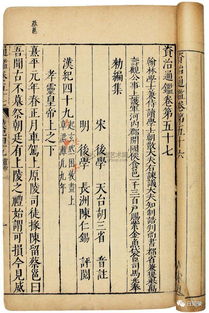 資治通鑑卷第五十七
翰林學士兼侍讀學士朝散大夫右諫議大夫知制誥判尚書都省兼提舉萬
壽觀公事上護軍河內郡開國侯食邑一千三百戶賜紫金魚袋臣司馬光奉
勅編集
宋 後學 天台胡三省 音註
明 後學 長洲陳仁錫 評閱
漢紀四十九
孝靈皇帝上之下
熹平元年春正月車駕上原陵司徒掾陳留蔡邕曰
吾聞古不墓祭朝廷有上陵之禮始謂可損今見威